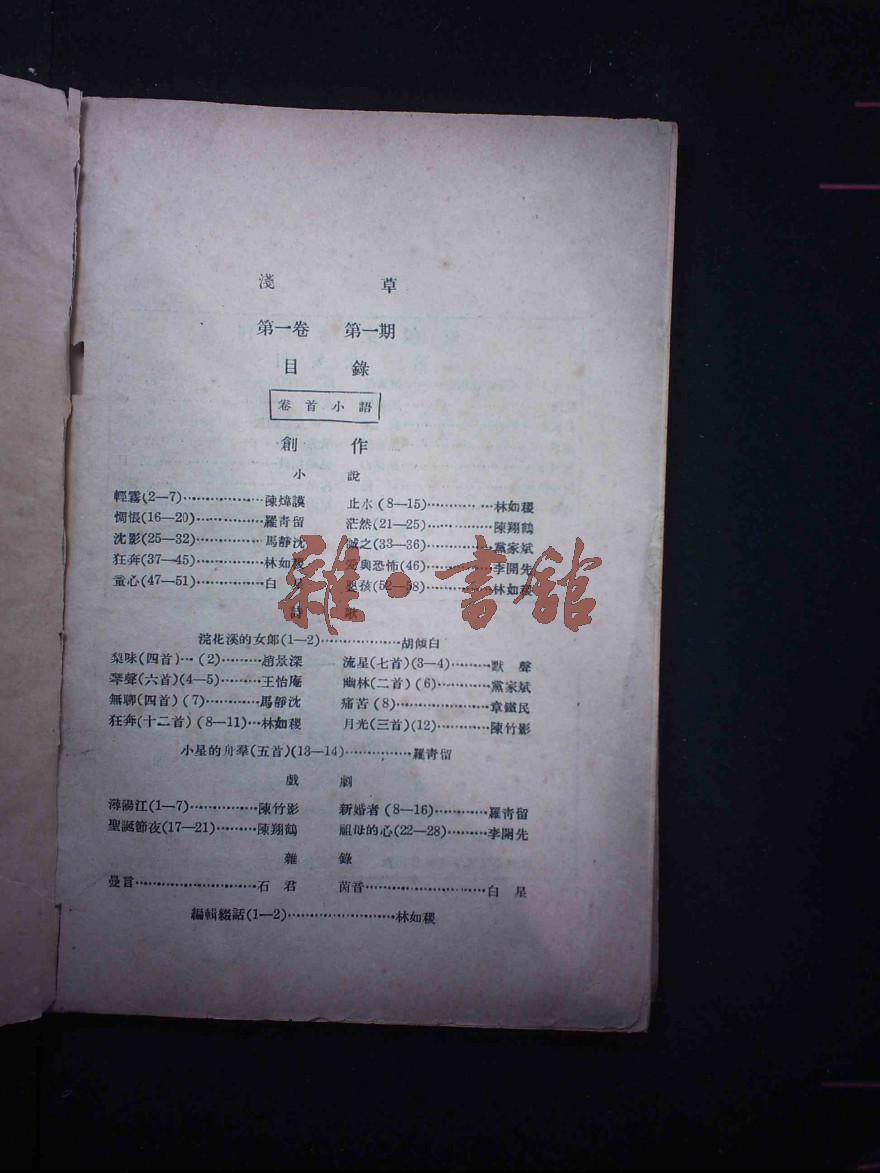 淺草
第一卷 第一期
目錄
卷首小語
創作
小說
輕霧(2—7)………………陳煒謨 止水(8—15)……………林如稷
惆悵(16—20)……………羅青留 茫然(21—25)……………陳翔鶴
沈影(25—32)……………馬靜沈 誠之(33—36)……………黨家斌
狂奔(37—45)……………林如稷 與恐怖(46)……………李開先
童心(47—51)……………白星 嬰孩(52—58)……………林如稷
詩歌
浣花溪的女郎(1—2)………………胡傾白
梨味(四首)…(2)………趙景深 流星(七首)(3—4)………默聲
琴聲(六首)(4—5)………王怡庵 幽林(二首)(6)…………黨家斌
無聊(四首)(7)…………馬靜沈 痛苦(8)…………………章鐵民
狂奔(十二首)(8—11)…林如稷 月光(三首)(12)…………陳竹影
小星的舟羣(五首)(13—14)……………羅青留
戲劇
潯陽江(1—7)……………陳竹影 新婚者(8—16)…………羅青留
聖誕節夜(17—21)………陳翔鶴 祖母的心(22—28)………李開先
雜錄
曼言…………………………石君 茵音…………………………白星
編輯綴話(1—2)………………………林如稷
雜·書舘